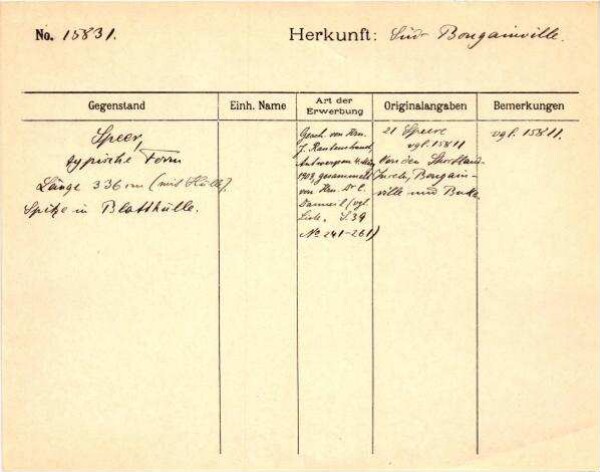 No. 15831. Herkunft: Süd-Bougainville.
Gegenstand Einh. Name Art der Erwerbung Originalangaben Bemerkungen
Speer,
typische Form
Länge 336 cm (mit Hülle).
Spitze in Blatthülle.
Gesch. von Hrn.
J. Rautenstrauch,
Antwerpen
1908, gesammelt
von Hrn. Dr. E.
(vgl.
Liste. S. 39
No 241-261)
21 Speere
vgl. 15811
Von den Shortland-
Inseln, Bougain-
ville und Buka.
vgl. 15811.